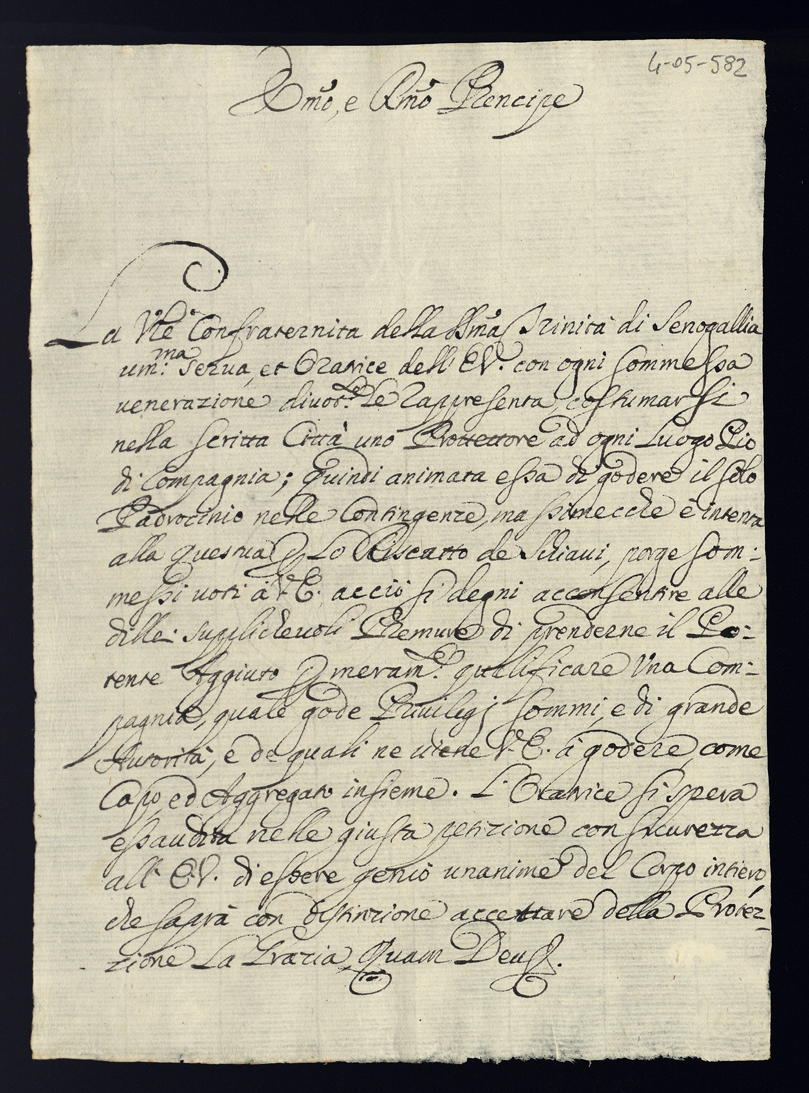 4-05-582
Emo, e Rmo Prencipe
La Vle Confraternita della SSma Trinità di Senogallia
um:ma Serva, et Oratrice dell'E.V. con ogni sommessa
venerazione divot:te Le rappresenta, costumarsi
nella scritta Città uno Prottettore ad ogni Luogo Pio
di Compagnia; Quindi animata essa di godere il solo
Padrocinio nelle Contingenze, massimecche è intenta
alla questua Lo Riscatto de Schiavi, porge som:
messi voti à V.E. acciò si degni acconsentire alle
di lle: supplichevoli Premure di prenderne il Po:
tente Aggiuto meram:te qualificare Una Com:
pagnia, quale gode Privilegj sommi, e di grande
Autorità, e de quali ne viene V.E. à godere, come
Capo ed Aggregato insieme. L'Oratrice si spera
essaudita nelle giusta petizione con sicurezza
all'E.V. di essere genio unanime del Corpo intiero
che saprà con distinzione accettare della Protez-
zione La Grazia Quam Deus.